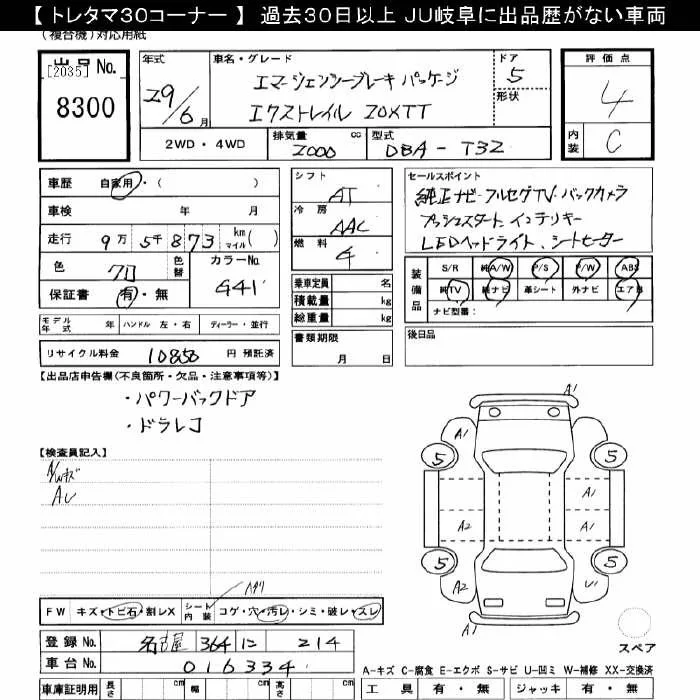 【 トレタマ30コーナー 】 過去30日以上 JU岐阜に出品歴がない車両
(複合機)対応用紙
出品 No.
[2035]
8300
年式 29/6 月
車名・グレード
エマージェンシーブレーキ パッケージ
エクストレイル 20XTT
ドア 5
形状
評価点 4
内装 C
2WD・4WD
排気量 cc 2000
型式 DBA - T32
車歴 自家用・( )
車検 年 月
走行 9万 5千873 km マイル( )
色 クロ 色替
カラーNo. G41
保証書 有・無
モデル年式 年 ハンドル 左・右 ディーラー・並行
リサイクル料金 10850 円 預託済
シフト AT
冷房 AAC
燃料
乗車定員 名
積載量 kg
総重量 kg
書類期限
月 日
セールスポイント
純正ナビ-フルセグTV、バックカメラ
プッシュスタート、インテリキー
LEDヘッドライト、シートヒーター
装備品
S/R 純A/W P/S P/W ABS
純TV 純ナビ 革シート 外ナビ エアB
ナビ型番:
後日品
【出品店申告欄(不良箇所・欠品・注意事項等)】
・パワーバックドア
・ドラレコ
【検査員記入】
A/Wキズ
FW キズ・トビ石・割レX
シート内装 コゲ・穴・汚レ・シミ・破レ・スレ
登録 No. 名古屋 364 に 214
車台 No. 016334
車庫証明用 長さ cm 幅 cm 高さ cm
A1
A1
5
5
A1
A2
A1
5
5
A2
U1
スペア
A-キズ C-腐食 E-エクボ S-サビ U-凹ミ W-補修 XX-交換済
工具 有・無 ジャッキ 有・無